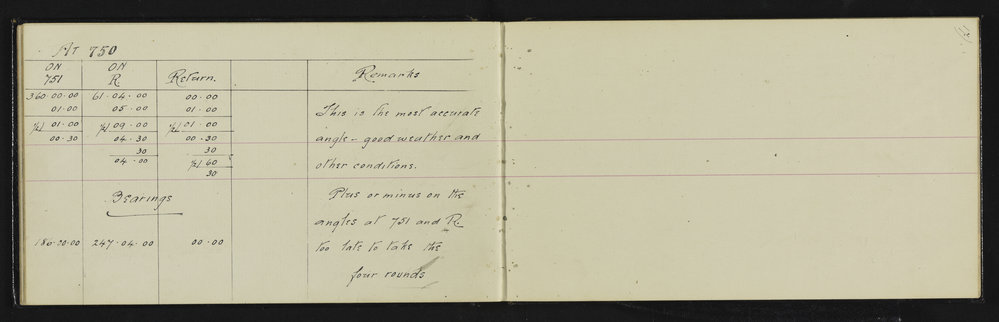 At 750
ON ON
751 R. Return. Remarks
360.00.00 61.04.00 00.00
01.00 05.00 01.00
½/ 01.00 ½/ 09.00 ½/ 01.00 This is the most accurate
00.30 04.30 00.30 angle - good weather and
30 30
04.00 ½/ 60 other conditions.
30
Bearings Plus or minus on the
angles at 751 and R.
186.00.00 247.04.00 00.00 too late to take the
four rounds